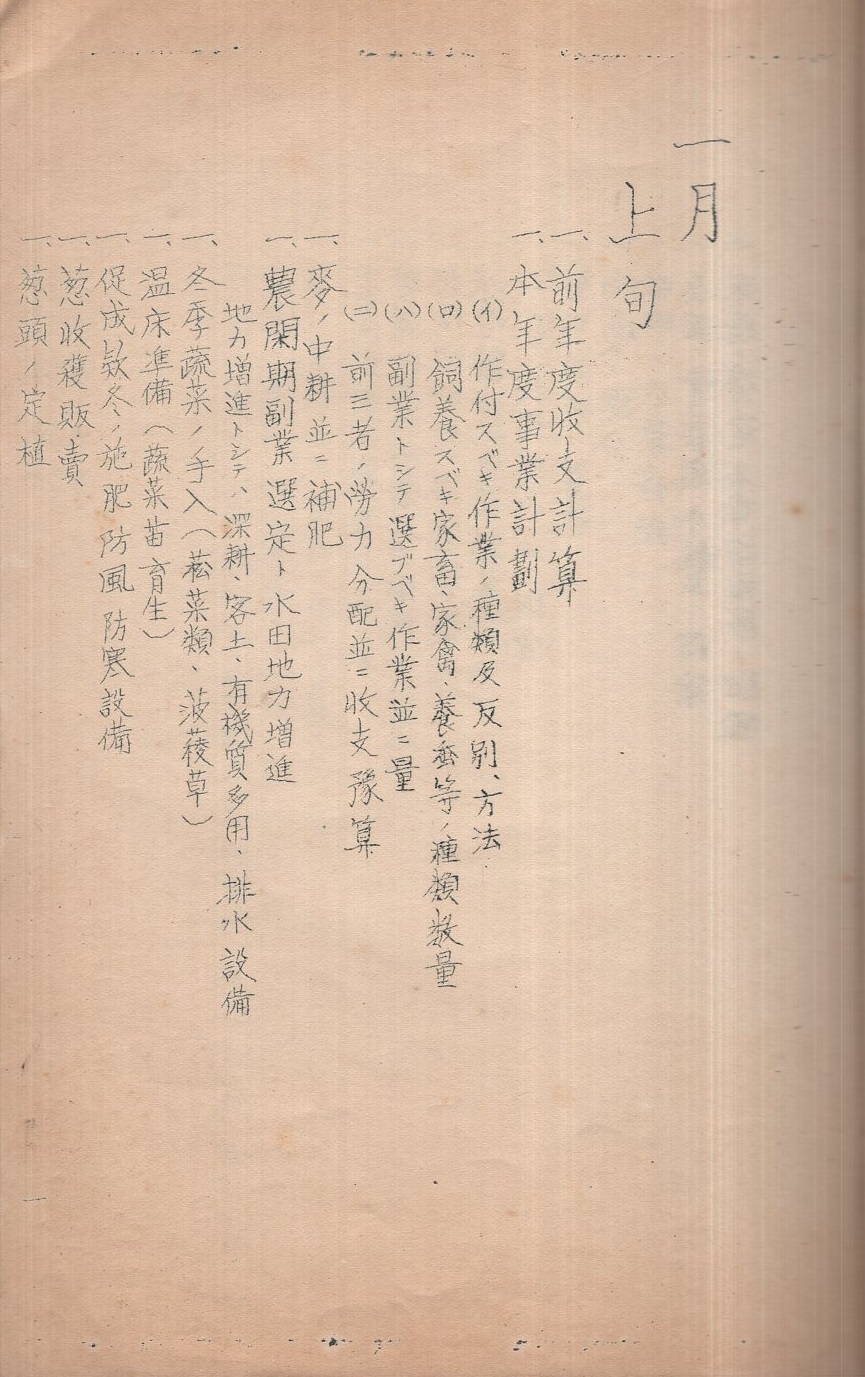 一月
上旬
一、前年度收支計算
一、本年度事業計劃
(イ) 作付スベキ作業ノ種類及反別、方法
(ロ) 飼養スベキ家畜、家禽、養蚕等ノ種類数量
(ハ) 副業トシテ選ブベキ作業並ニ量
(ニ) 前三者ノ勞力分配並ニ收支豫算
一、麥ノ中耕並ニ補肥
一、農閑期副業選定ト水田地力増進
地力増進トシテハ深耕、客土、有機質多用、排水設備
一、冬季蔬菜ノ手入(菘菜類、菠薐草)
一、温床準備(蔬菜苗育生)
一、促成款冬ノ施肥防風防寒設備
一、葱收穫販賣
一、葱頭ノ定植